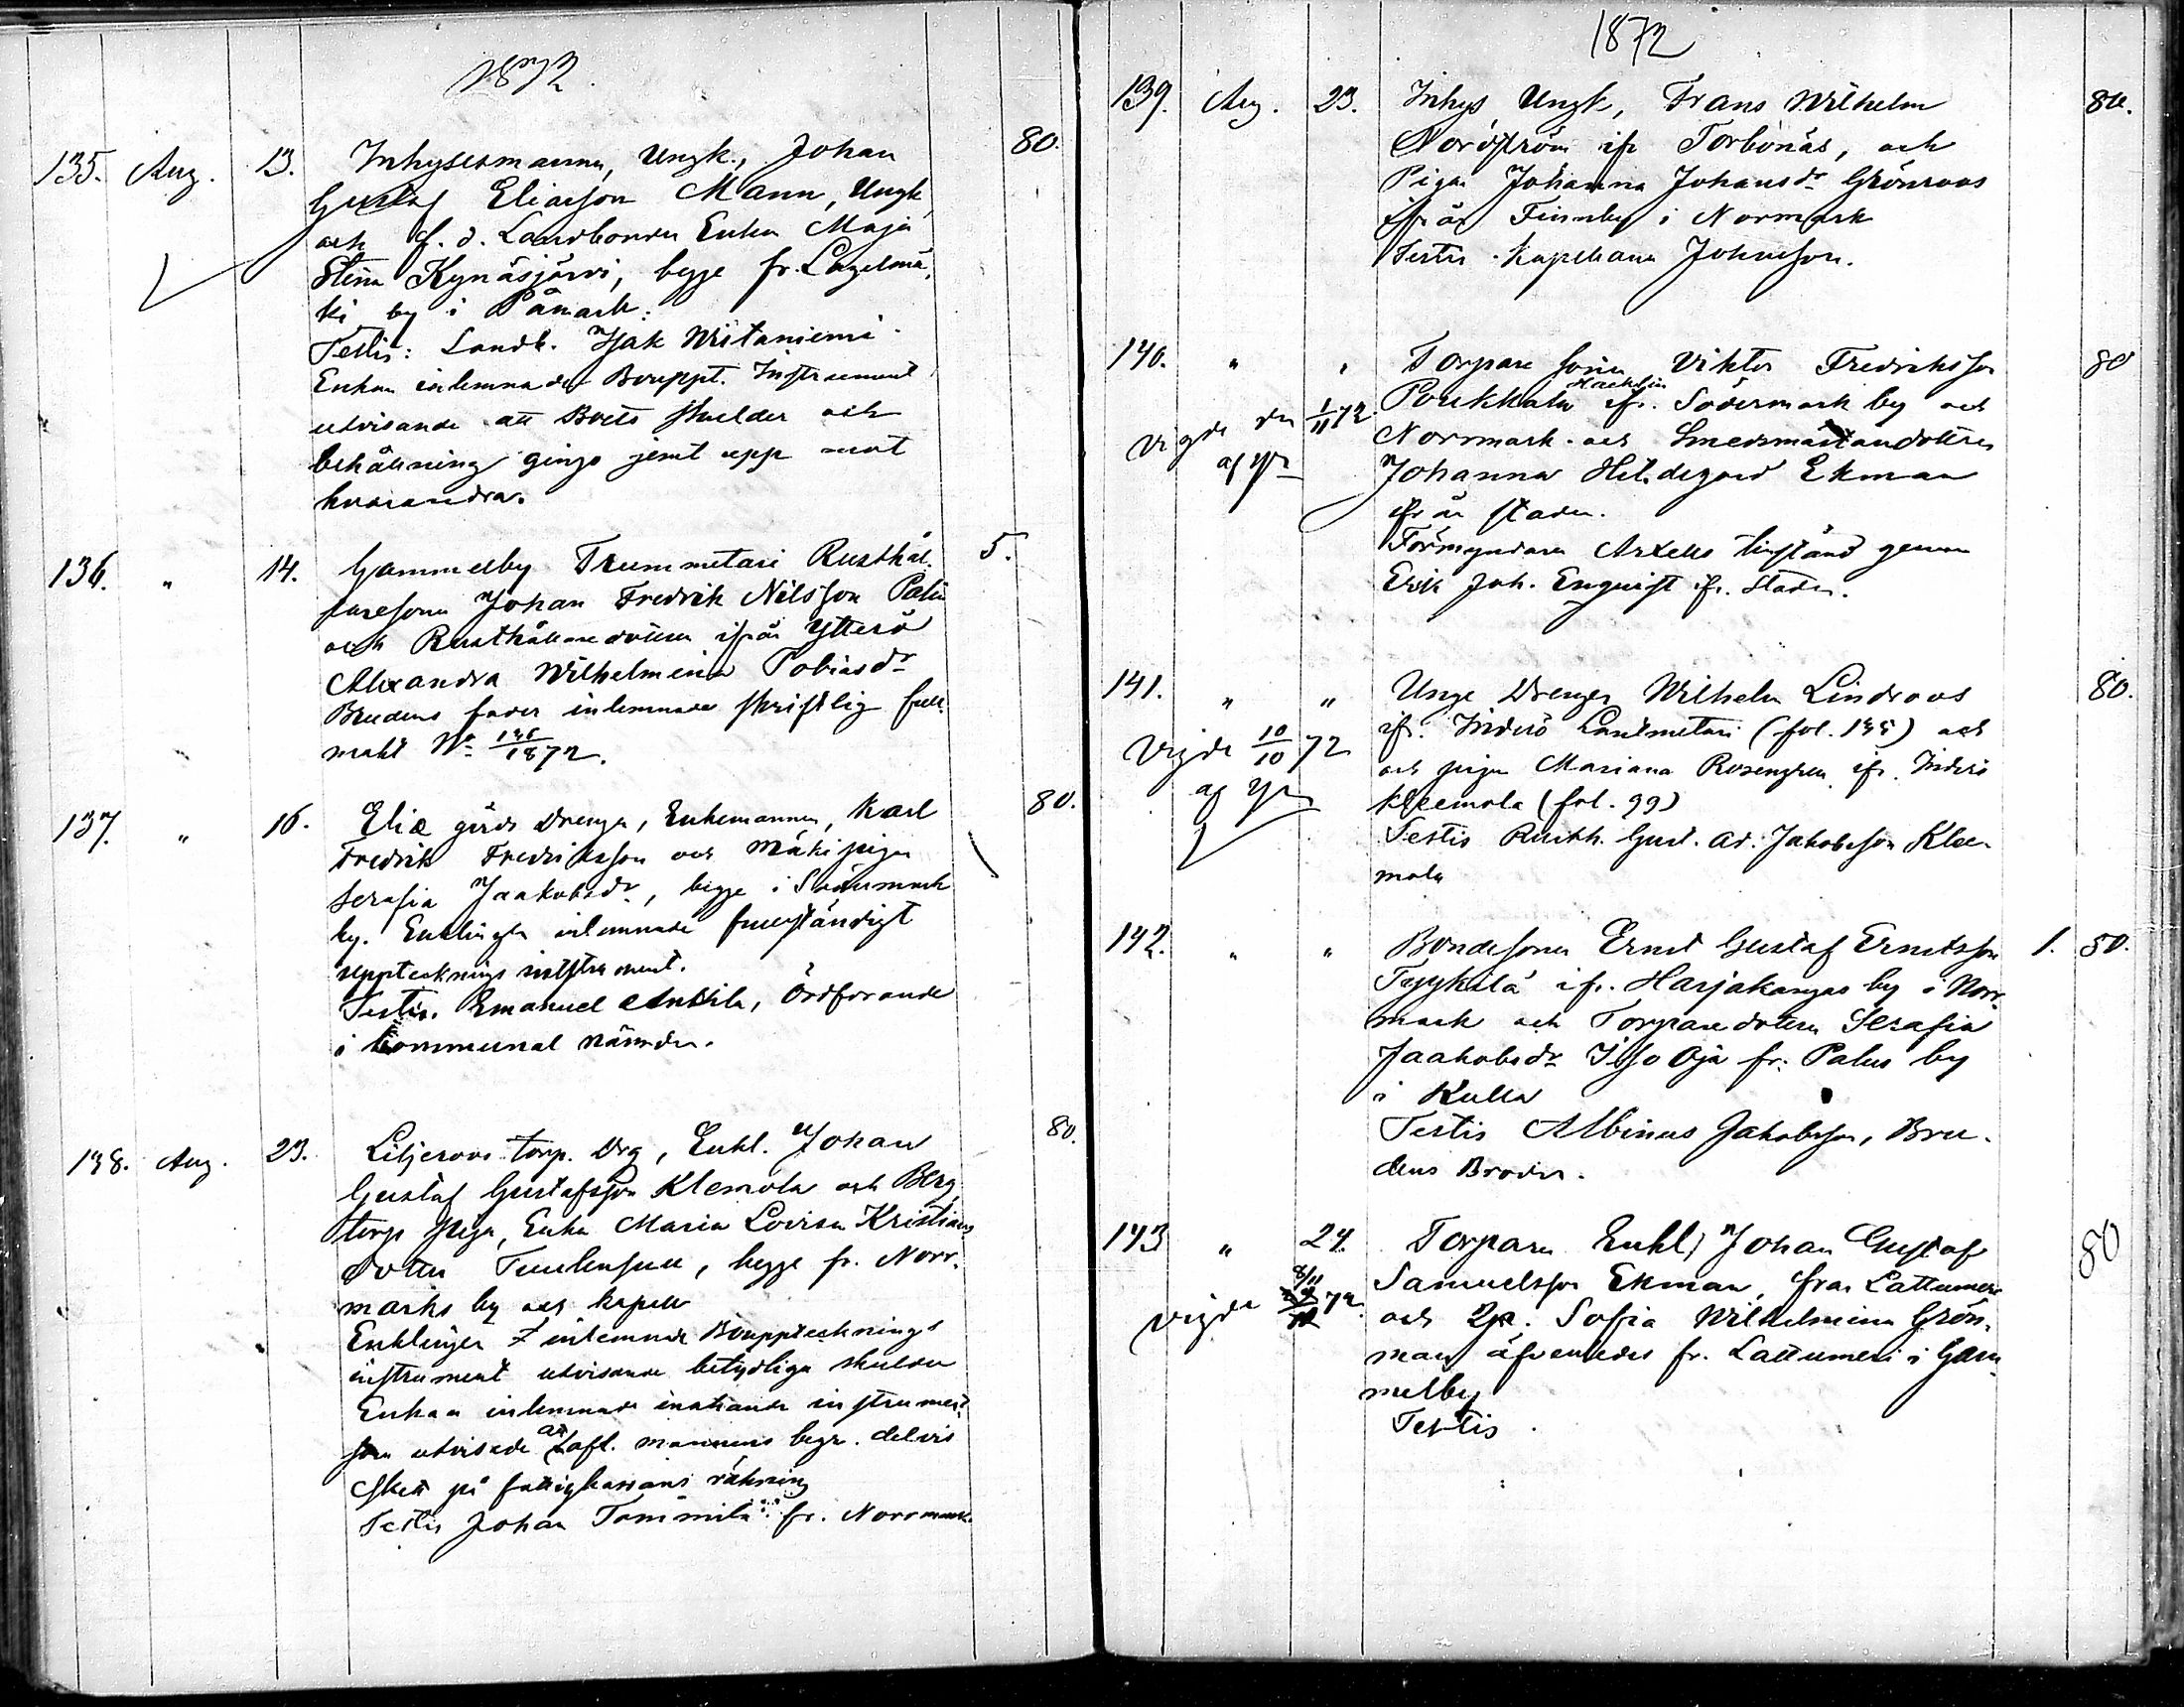 1872.
135. Aug. 13. Inhysesmannen, Ungk., Johan 80.
Gustaf Eliasson Mann, Ungk
och f. d. Landbonden Enkan Maja
Stina Kynäsjärvi, begge fr. Lagelmä,
ki by i Påmark.
Testis: Landb. Isak Wiitaniemi.
Enkan inlemnade Bouppt. Instrument
utvisande att Boets skulder och
behållning gingo jemt upp mot
hvarandra.
136. " 14. Gammelby Trummetari Rusthål. 5.
laresonen Johan Fredrik Nilsson Palin
och Rusthållaredottren ifrån Ytterö
Alexandra Wilhelmina Tobiasdr
Brudens fader inlemnade skriftlig full-
makt No 136/1872.
137. " 16. Eliæ gårds Drengen, Enkemannen, Karl 80.
Fredrik Fredriksson och Mäki pigan
Serafia Jaakobsdr, begge i Södermark
by. Enklingen inlemnade fullständigt
upptecknings instrument.
Testis. Emanuel Anttila, Ordförande
i kommunal nämnden.
138. Aug. 23. Liljeroos torp. Drg, Enkl. Johan 80.
Gustaf Gustafsson Klemola och Berg
torps piga, Enkan Maria Lovisa Kristians
dotter, begge fr. Norr.
marks by och kapell
Enklingen inlemnade Bouppteknings
instrument utvisande betydliga skulder
Enkan inlemnade instrument
som utvisade att afl. mannens begr. delvis
skett på fattigkassans räkning
Testis Johan Tommila fr. Norrmark
1872
139. Aug. 23. Inhys Ungk, Frans Wilhelm 80.
Nordström ifr Torbonäs, och
Pigan Johanna Johansdr Grönroos
ifrån Finnby i Normark
Testis Kapellanen Johnsson.
140. " " Torpare sonen Viktor Fredriksson 80
Haeklin
Poukkala ifr. Södermark by och
vigde den 1/11 72
Norrmark och Smedsmästaredottren
af
Johanna Hildegard Ekman
ifrån staden.
Förmyndaren Axells tillstånd genom
Erik Joh. Enqvist ifr. Staden.
141. " " Unge Drengen Wilhelm Lindroos 80.
ifr. Inderö Lantmetari (fol. 135) och
Vigde 10/10 72
och pigan Mariana Rosengren ifr. Inderö
af
Kleemola (fol. 99)
Testis Rusth. Gust. Ad. Jakobsson Klee-
mola
142. " " Bondesonen Ernst Gustaf Ernstsson 1. 50.
Tyykilä ifr. Harjakangas by i Norr.
mark och Torparedottren Serafia
Jaakobsdr Iso Oja fr. Palus by
i Kulla
Testis Albinus Jakobsson, Bru-
dens Broder.
143 " 24. Torparen Enkl, Johan Gustaf 80
Samuelsson Ekman, från Lattumeri
vigde 8/11 72.
och Qp. Sofia Wilhelmina Grön-
man äfvenledes fr. Lattumeri i Gam
melby
Testis.